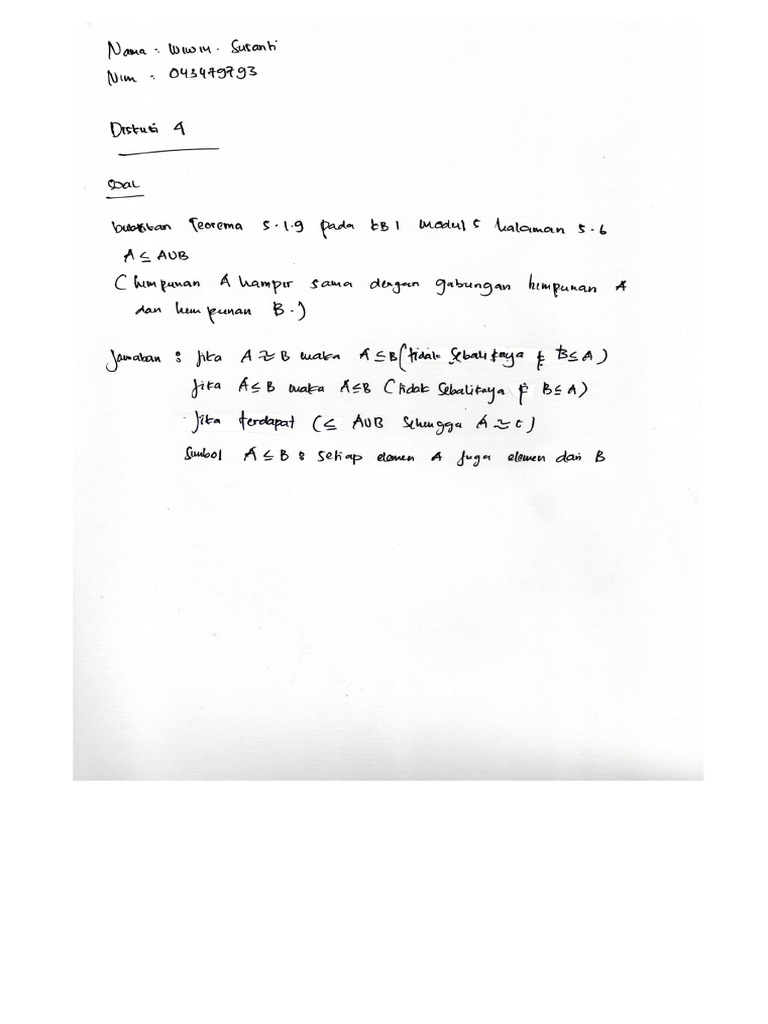 Nama : Wiwin. Susanti
Nim : 043479793
Diskusi 4
Soal
buktikan Teorema 5.1.9 pada KB 1 modul 5 halaman 5.6
A ≤ AUB
( himpunan A hampir sama dengan gabungan himpunan A
dan himpunan B.)
Jawaban : Jika A ≈ B maka A ≤ B (tidak sebaliknya & B ≤ A)
Jika A ≤ B maka A ≤ B (tidak sebaliknya & B ≤ A)
Jika terdapat C ≤ AUB sehingga A ≈ C)
Simbol A ≤ B : setiap elemen A juga elemen dari B